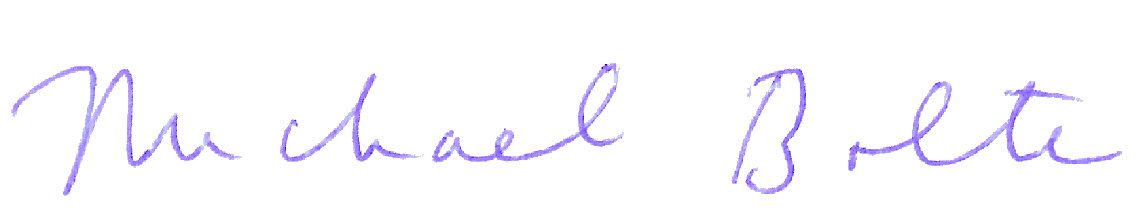 Michael Bolte